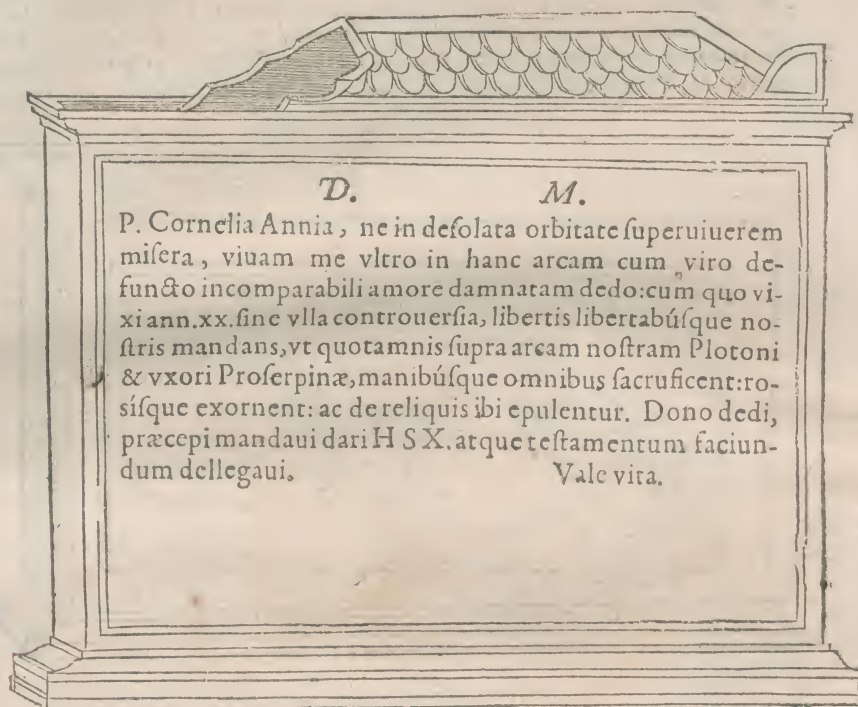 D. M.
P. Cornelia Annia, ne in desolata orbitate superuiuerem
misera, viuam me vltro in hanc arcam cum viro de-
functo incomparabili amore damnatam dedo:cum quo vi-
xi ann.xx.sine vlla controuersia, libertis libertabúsque no-
stris mandans,vt quotamnis supra arcam nostram Plotoni
& vxori Proserpinæ,manibúsque omnibus sacruficent:ro-
sísque exornent: ac de reliquis ibi epulentur. Dono dedi,
præcepi mandaui dari H S X. atque testamentum faciun-
dum dellegaui. Vale vita.